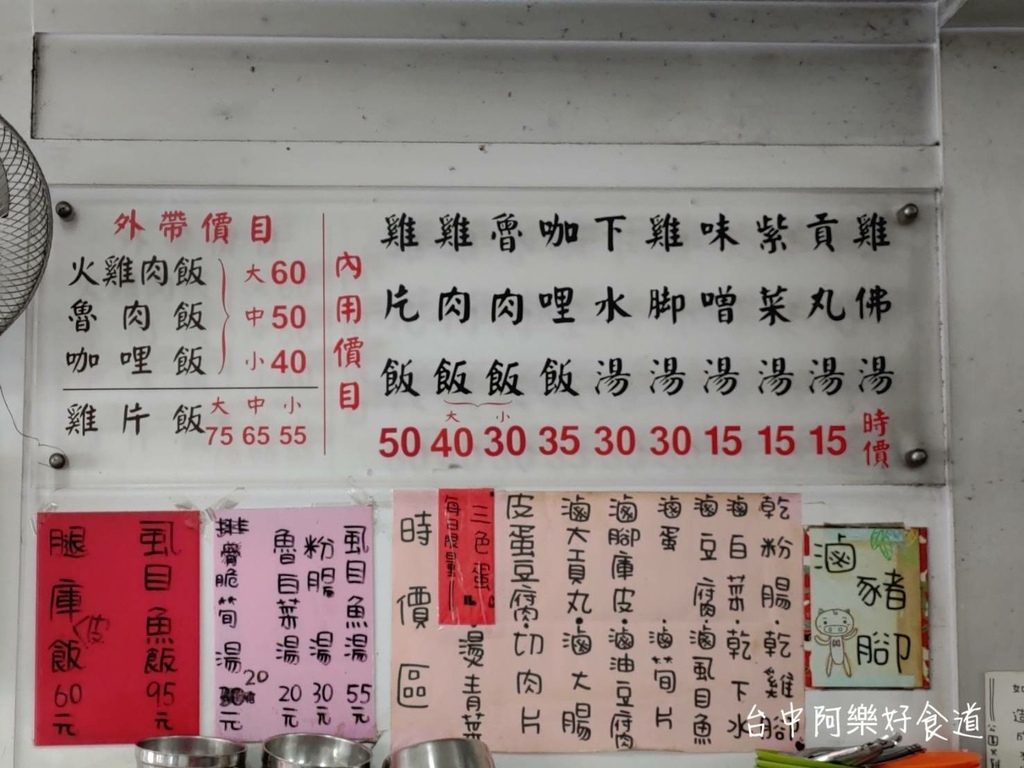 外帶價目
火雞肉飯 大60
魯肉飯 中50
咖哩飯 小40
雞片飯 大75 中65 小55
內用價目
雞片飯 50
雞肉飯 大 40
魯肉飯 小 30
咖哩飯 35
下水湯 30
雞脚湯 30
味噌湯 15
紫菜湯 15
貢丸湯 15
雞佛湯 時價
虱目魚飯 95元
腿庫飯 60元
虱目魚湯 55元
粉腸湯 30元
魯白菜湯 20元
脆筍湯 20元
時價區
三色蛋
每日限量
乾粉腸·乾雞腳
滷白菜·乾下水
滷豆腐·滷虱目魚
滷蛋·滷筍片
滷腳庫皮·滷油豆腐
滷大貢丸·滷大腸
皮蛋豆腐·切肉片
燙青菜
滷豬腳
台中阿樂好食道